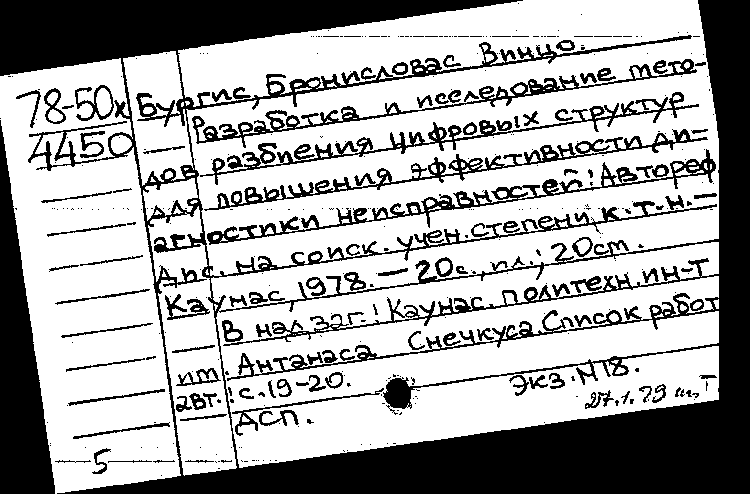 78-50х Бургис, Бронисловас Винцо.
4450 Разработка и исследование мето-
дов разбиения цифровых структур
для повышения эффективности ди-
агностики неисправностей: Автореф.
дис. на соиск. учен. степени к.т.н. —
Каунас, 1978. — 20с., ил.; 20см.
В надзаг.: Каунас. политехн. ин-т
им. Антанаса Снечкуса. Список работ
авт.: с.19-20.
ДСП. Экз. №18.
5 27.1.79